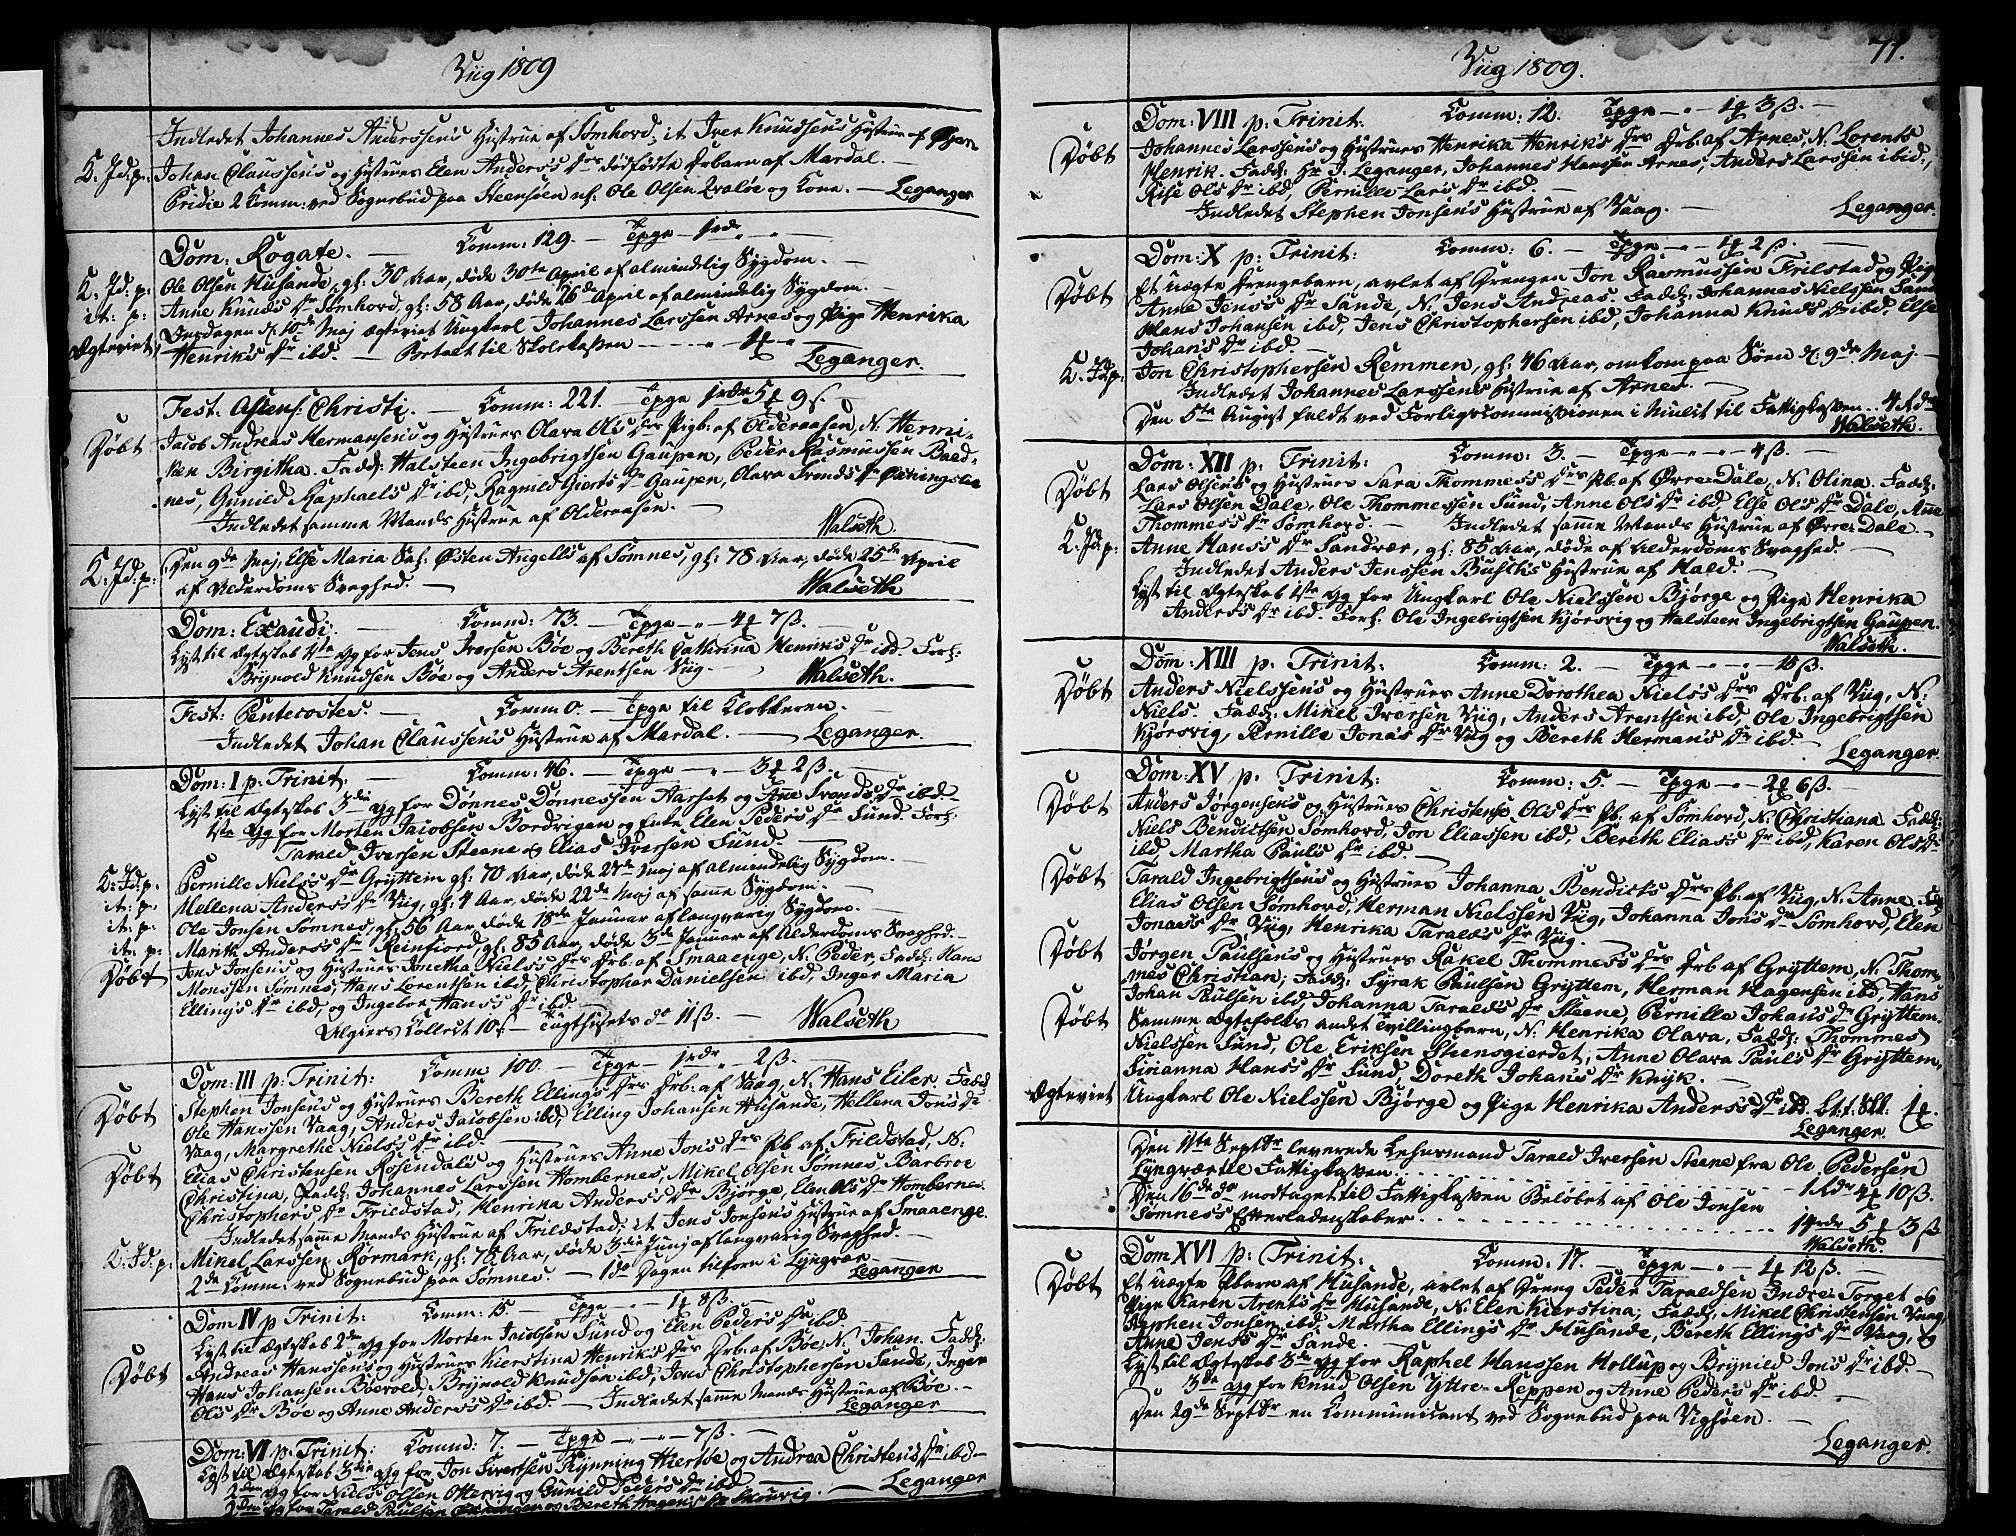 Viig 1809
Indledet Johannes Anderssens Hustrue af Sømhord; it Iver Knudsens Hustrue af
K: Jd: p: Johan Claussens og Hustrues Elen Anders's Drs dødfødte Drbarn af Mardal. —
Pridie 2 Komm: ved Sognebud paa Steensøen nl: Ole Olsen og Kone. — Leganger
Dom: Rogate. — Comm: 129. — Tpge 1rdr " —
K: Jd: p: Ole Olsen Husande, gl: 30 Aar, døde 30te April af almindelig Sygdom. —
it: p: Anne Knuds Dr Sømhord, gl: 58 Aar, døde 26de April af almindelig Sygdom. —
Ægteviet Onsdagen d: 10de Maj ægteviet Ungkarl Johannes Larssen Arnes og Pige Henrika
Henriks Dr ibd. — Betalt til Skolekassen
Leganger.
Fest: Ascens: Christi. — Comm: 221. — Tpge 1rdr 5 9ß. —
Døbt Jacob Andreas Hermansens og Hustrues Olava Ols Drs Pigb: af Olderaasen, N: Hermi-
ken Birgitha. Fadd: Halsteen Ingebrigtsen Gaupen, Peder Rasmussen Bald-
nes, Gunild Raphaels Dr ibd, Ragnild Gierts Dr Gaupen, Olava Svends Dr
Indledet samme Mands Hustrue af Olderaasen. —
Walseth
K: Jd: p: Den 9de Maj, Else Maria Sal: Østen Angells af Sømnes, gl: 78 Aar, døde 25de April
af Alderdoms Svaghed. — Walseth
Dom: Exaudi. — Comm: 73. — Tpge — " — 4 7ß. —
Lyst til Ægteskab 1ste Gg for Jens Iversen Bøe og Bereth Cathrina Henriks Dr ibd. Forl:
Brynold Knudsen Bøe og Anders Arentsen Viig. — Walseth.
Fest: Pentecostes. — Comm 0. — Tpge til Klokkeren. —
Indledet Johan Claussens Hustrue af Mardal. — Leganger.
Dom: I p: Trinit: — Comm: 46. — Tpge — " — 3 2ß. —
Lyst til Ægteskab 3die Gg for Dønnes Dønnessen Aarset og Ane Svends Dr ibd. —
1ste Gg for Morten Jacobsen Bordvigen og Enke Elen Peders Dr Sund. Forl:
Tarald Iversen Steene og Elias Iversen Sund. —
K: Jd: p. Pernille Niels's Dr Gryttem gl: 70 Aar, døde 27de Maj af almindelig Sygdom. —
it: p: Mellena Anders's Dr Viig, gl: 4 Aar, døde 22de Maj af samme Sygdom. —
it: p: Ole Jonsen Sømnes, gl: 56 Aar, døde 18de Januar af langvarig Sygdom. —
it: p: Marit Anders's Dr Reinfiord, gl: 85 Aar, døde 3de Januar af Alderdoms Svaghed. —
Døbt Jens Jonsens og Hustrues Jonetha Niels's Drs Drb: af Smaaenge, N: Peder, Fadd: Hans
Monssen Sømnes, Hans Lorentsen ibd, Christopher Danielsen ibd, Inger Maria
Ellings Dr ibd, og Ingebor Hans's Dr ibd.
Algiers Collect 10ß — Tugthusets do 11ß. — Walseth
Dom: III p: Trinit: Comm 100. — Tpge — 1rdr " 2ß. —
Døbt Stephen Jonsens og Hustrues Bereth Ellings Drs Drb: af Vaag, N. Hans Eiler. Fadd:
Ole Hanssen Vaag, Anders Jacobsen ibd, Elling Johansen Husande, Hellena Jons Dr
Vaag, Margrethe Niels's Dr ibd.
Døbt Elias Christensen Rosendals og Hustrues Anne Jons Drs Pb af Frildstad, N:
Christina, Fadd: Johannes Larssen Hombernes, Mikel Olsen Sømnes, Barbroe
Christophers Dr Frildstad, Henrika Anders's Dr Bjørge, Elen Ols Dr Hombernes.
Indledet samme Mands Hustrue af Frildstad; it Jens Jonsens Hustrue af Smaaenge.
K: Jd: p: Mikel Larssen Kørmark, gl: 78 Aar, døde 3die Junj af langvarig Svaghed. —
2de Comm: ved Sognebud paa Sømnes. — 1 do Dagen tilforn i Lyngvær
Leganger
Dom IV p Trinit: Comm: 15. — Tpge " 1 8ß. —
Lyst til Ægteskab 2de Gg for Morten Jacobsen Sund og Elen Peders Dr ibd
Døbt Andreas Hanssens og Hustrues Kierstina Henriks Drs Drb: af Bøe, N: Johan. Fadd:
Hans Johansen Bøevold, Brynold Knudsen ibd, Jens Christophersen Sande, Inger
Ols Dr Bøe og Anne Anders's Dr ibd. — Indledet samme Mands Hustrue af Bøe. —
Leganger
Dom: VI p: Trinit: Comm: 7. — Tpge — " — 7ß. —
Lyst til Ægteskab 3die Gg for Jon Sivertsen Rynning Hiertøe og Andrea Christens Dr ibd—
2den Gg for Niels Olsen Ottervig og Gunild Peders Dr ibd — Leganger
2den Gg for Tarald Paulsen og Bereth Hagens Dr
Viig 1809. 71.
Dom: VIII p: Trinit: Comm: 12. Tpge — " — 1 3ß. —
Døbt Johannes Larssens og Hustrues Henrika Henriks Drs Drb: af Arnes, N. Lorents
Henrik. Fadd: Hr J. Leganger, Johannes Hanssen Arnes, Anders Larssen ibid:,
Else Ols Dr ibd, Pernille Lars Dr ibd.
Indledet Stephen Jonsens Hustrue af Vaag. — Leganger.
Dom: X p: Trinit: Comm: 6. — Tpge — " — 1 2ß. —
Døbt Et uægte Drengebarn, avlet af Drengen Jon Rasmussen Frilstad og Pige
Anne Jens's Dr Sande, N. Jens Andreas. Fadd: Johannes Nielssen Sande
Hans Johansen ibd, Jens Christophersen ibd, Johanna Knuds Dr ibd, Else
Johans Dr ibd.
K. Jd p: Jon Christophersen Remmen, gl: 46 Aar, omkom paa Søen d: 9de Maj. —
Indledet Johannes Larssens Hustrue af Arnes. —
Den 5te August faldt ved Forligscommissionen i Mulct til Fattigkassen . . 4 rdr
Walseth.
Dom: XII p: Trinit: Comm: 3. — Tpge — " — " — 4ß. —
Døbt Lars Olsens og Hustrues Sara Thommes's Drs Pb. af Øvre Dale, N. Olina. Fadd:
Lars Olsen Dale, Ole Thommessen Sund, Anne Ols Dr ibd, Else Ols Dr Dale, Anne
Thommes's Dr Sømhord. — Indledet samme Mands Hustrue af Øvre Dale. —
K: Jd: p: Anne Hans's Dr Sandvær, gl: 85 Aar, døde af Alderdoms Svaghed. —
Indledet Anders Jenssen Buslks Hustrue af Hald. —
Lyst til Ægteskab 1ste Gg for Ungkarl Ole Nielssen Bjørge og Pige Henrika
Anders's Dr ibd. Forl: Ole Ingebrigtsen Kjørsvig og Halsteen Ingebrigtsen Gaupen.
Walseth.
Dom: XIII p: Trinit: Comm: 2. — Tpge — " — " — 15ß. —
Døbt Anders Nielssens og Hustrues Anne Dorothea Niels's Drs Drb: af Viig, N:
Niels. Fadd: Mikel Iversen Viig, Anders Arentsen ibd, Ole Ingebrigtsen
Kjørsvig, Pernille Jonas Dr Viig og Bereth Hermans Dr ibd. —
Leganger.
Dom: XV p: Trinit: Comm: 5. — Tpge — " 2 6ß. —
Døbt Anders Jørgensens og Hustrues Christense Ols Drs Pb. af Sømhord, N. Christiana. Fadd:
Niels Bendictsen Sømhord, Jon Eliassen ibd, Bereth Elias's Dr ibd, Karen Ols Dr
ibd, Martha Pauls Dr ibd. —
Døbt Tarald Ingebrigtsens og Hustrues Johanna Bendicts Drs Pb. af Viig, N. Anne. Fadd:
Elias Olsen Sømhord, Herman Nielssen Viig, Johanna Jons Dr Sømhord, Elen
Jonas's Dr Viig, Henrika Taralds Dr Viig.
Døbt Jørgen Paulsens og Hustrues Rakel Thommes's Drs Drb af Gryttem, N. Thom-
mes Christian; Fadd: Syrak Paulsen Gryttem, Herman Hagensen ibd, Hans
Johan Paulsen ibd, Johanna Taralds Dr Steene, Pernille Johans Dr Gryttem.
Døbt Samme Ægtefolks andet Tvillingbarn, N: Henrika Olava, Fadd: Thommes
Nielssen Sund, Ole Eriksen Steensgierdet, Anne Olava Pauls Dr Gryttem,
Sirianna Hans's Dr Sund, Doreth Johans Dr Knyk. —
Ægteviet Ungkarl Ole Nielssen Bjørge og Pige Henrika Anders's Dr ibd. Bt: t: Skl: 1.
Leganger.
Den 11te Septbr leverede Lehnsmand Tarald Iversen Steene fra Ole Pedersen
Lyngværet Fattigkassen . . . . . . . . 1 rdr 4 10ß.
Den 16de do modtaget til Fattigkassen Beløbet af Ole Jonsen
Sømnes's Efterladenskaber . . . . . . . . 14rdr 5 3ß
Walseth.
Dom XVI p: Trinit: Comm: 17. — Tpge — " — 1 12ß. —
Døbt Et uægte Pbarn af Husande, avlet af Dreng Peder Taraldsen Indre-Torget og
Pige Karen Arents Dr Husande, N. Elen Kierstina; Fadd: Mikel Christensen Vaag,
Stephen Jonsen ibd, Martha Ellings Dr Husande, Bereth Ellings Dr Vaag, og
Anne Jens's Dr Sande. —
Lyst til Ægteskab 3de Gg for Raphel Hanssen Hollup og Brynild Jons Dr ibd. —
3de Gg for Knud Olsen Yttre-Reppen og Anne Peders Dr ibd. —
Den 29de Septbr en Communicant ved Sognebud paa Vigsøen. —
Leganger.